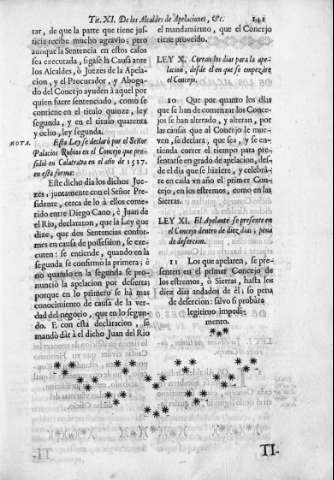 Tit. XI. De los Alcaldes de Apelaciones, &c. 241
tar, de que la parte que tiene jus-
ticia recibe mucho agravio; pero
aunque la Sentencia en estos casos
sea executada, sigase la Causa ante
los Alcaldes, ò Juezes de la Apela-
cion, y el Procurador, y Aboga-
do del Concejo ayuden à aquel por
quien fuere sentenciado, como se
contiene en el titulo quinze, ley
segunda, y en el titulo quarenta
y ocho, ley segunda.
NOTA.
Esta Ley se declarò por el Señor
Palacios Rubios en el Concejo que pre-
sidiò en Calatrava en el año de 1527.
en esta forma:
Este dicho dia los dichos Jue-
zes, juntamente con el Señor Pre-
sidente, cerca de lo à ellos come-
tido entre Diego Cano, è Juan de
el Rio, declararon, que la Ley que
dize, que dos Sentencias confor-
mes en causa de possession, se exe-
cuten: se entiende, quando en la
segunda se confirmò la primera; è
no quando en la segunda se pro-
nunciò la apelacion por desierta
porque en lo primero se hà mas
conocimiento de causa de la ver-
dad del negocio, que en lo segun-
do. E con esta declaracion, se
mandò dàr à el dicho Juan del Rio
el mandamiento, que el Concejo
tiene proveido.
LEY X. Corran los dias para la ape-
lacion, desde el en que se empezare
el Concejo.
10 Que por quanto los dias
que se han de comenzar los Conce-
jos se han alterado, y alteran, por
las causas que al Concejo le mue-
ven, se declara, que sea, y se en-
tienda correr el tiempo para pre-
sentarse en grado de apelacion, des-
de el dia que se hiziere, y celebra-
re en cada un año el primer Con-
cejo, en los estremos, como en las
Sierras.
LEY XI. El Apelante se presente en
el Concejo dentro de diez dias, pena
de desercion.
11 Los que apelaren, se pre-
senten en el primer Concejo de
los estremos, ò Sierras, hasta los
diez dias andados de èl; so pena
de desercion: salvo si probàre
legitimo impedi-
mento.
TI-